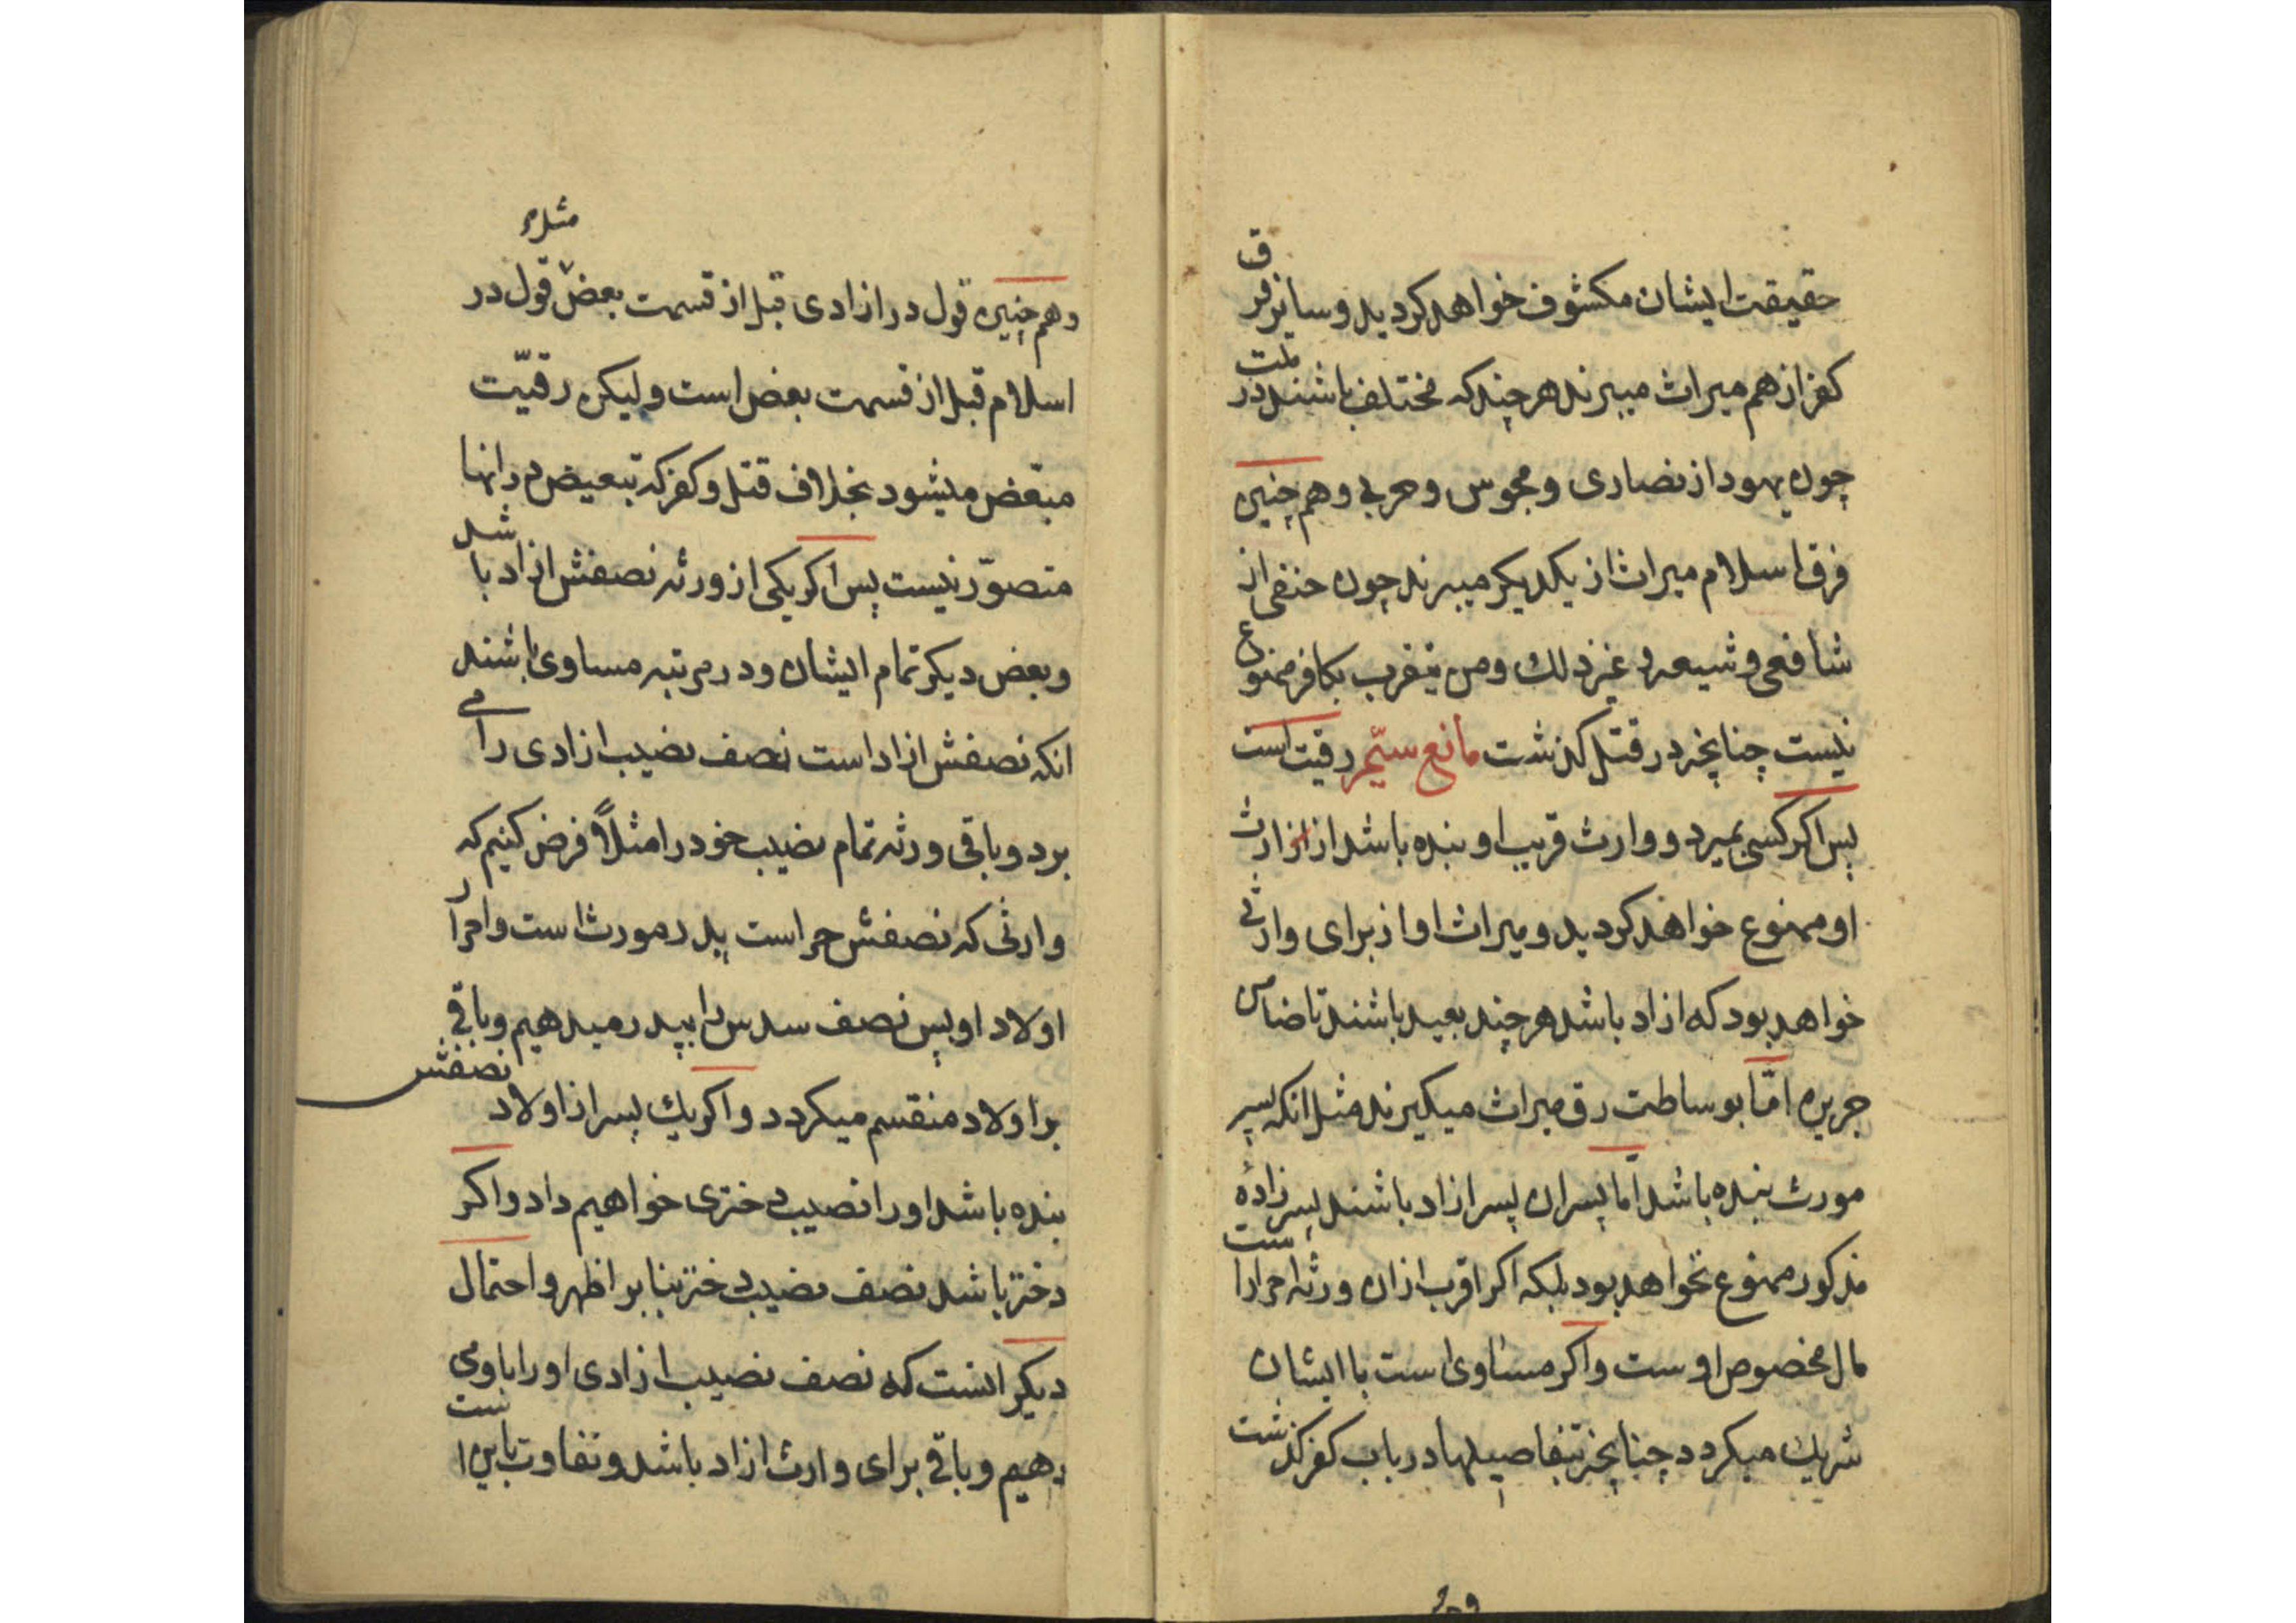 حقیقت ایشان مکشوف خواهد کردید و سایر فرق
کفر از هم میراث میبرند هر چند که مختلف باشند در ملت
چون یهود از نصاری و مجوس و حربی و هم چنین
فرق اسلام میراث از یکدیکر میبرند چون حنفی از
شافعی و شیعه و غیر ذلك و من یتقرب بکافر ممنوع
نیست چنانچه در قتل کذشت مانع سیّم رقیت است
پس اکر کسی بمیرد و وارث قریب او بنده باشد از ارث
او ممنوع خواهد کردید و میراث او از برای وارثی
خواهد بود که ازاد باشد هر چند بعید باشند تا ضامن
جریره امّا بوساطت رق میراث میکیرند مثل انکه پسر
مورث بنده باشد امّا پسران پسر ازاد باشند پسرزادهٔ
مذکور ممنوع نخواهد بود بلکه اکر اقرب از ان ورثه احرار است
مال مخصوص اوست و اکر مساوی است با ایشان
شریك میکردد چنانچه تبفاصیلها در باب کفر کذشت
و هم چنین قول در ازادی قبل از قسمت بعض مثل قول در
اسلام قبل از قسمت بعض است و لیکن رقیّت
متبعّض میشود بخلاف قتل و کفر که تبعیض در انها
متصوّر نیست پس اکر یکی از ورثه نصفش ازاد باشد
و بعض دیکر تمام ایشان و در مرتبه مساوی باشند
انکه نصفش ازاد است نصف نصیب ازادی را می
برد و باقی ورثه تمام نصیب خود را مثلاً فرض کنیم که
وارثی که نصفش حر است پدر مورث است و احرار
اولاد او پس نصف سدس را بپدر میدهیم و باقی
بر اولاد منقسم میکردد و اکر یك پسر از اولاد نصفش
بنده باشد او را نصیب دختری خواهیم داد و اکر
دختر باشد نصف نصیب دختر بنا بر اظهر و احتمال
دیکر انست که نصف نصیب ازادی او را باو می
دهیم و باقی برای وارث ازاد باشد و تفاوت باین است